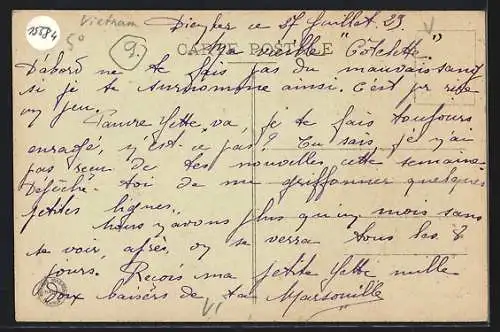 15684
Vietnam
5°
9.
Dieppe ce 27 Juillet 29.
CARTE POSTALE
Ma vieille "Côtelette"
D'abord ne te fais pas du mauvais sang
si je te surnomme ainsi. C'est pr rire
un peu.
Pauvre Yette, va, je te fais toujours
enragé, n'est-ce pas? Tu sais je n'ai
pas reçu de tes nouvelles cette semaine
Dépêche-toi de me griffonner quelques
petites lignes.
Nous n'avons plus qu'un mois sans
se voir, après, on se verra tous les
jours. Reçois ma petite Yette mille
doux baisers de ta Marsouille
VI